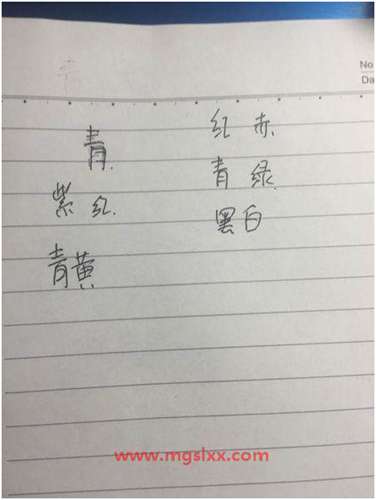 No
Da
青 红 赤
紫 红 青 绿
青黄 黑白
www.mgslxx.com